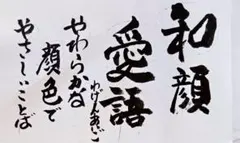 和顔
愛語
わげんあいご
やわらかな
顔色で
やさしいことば